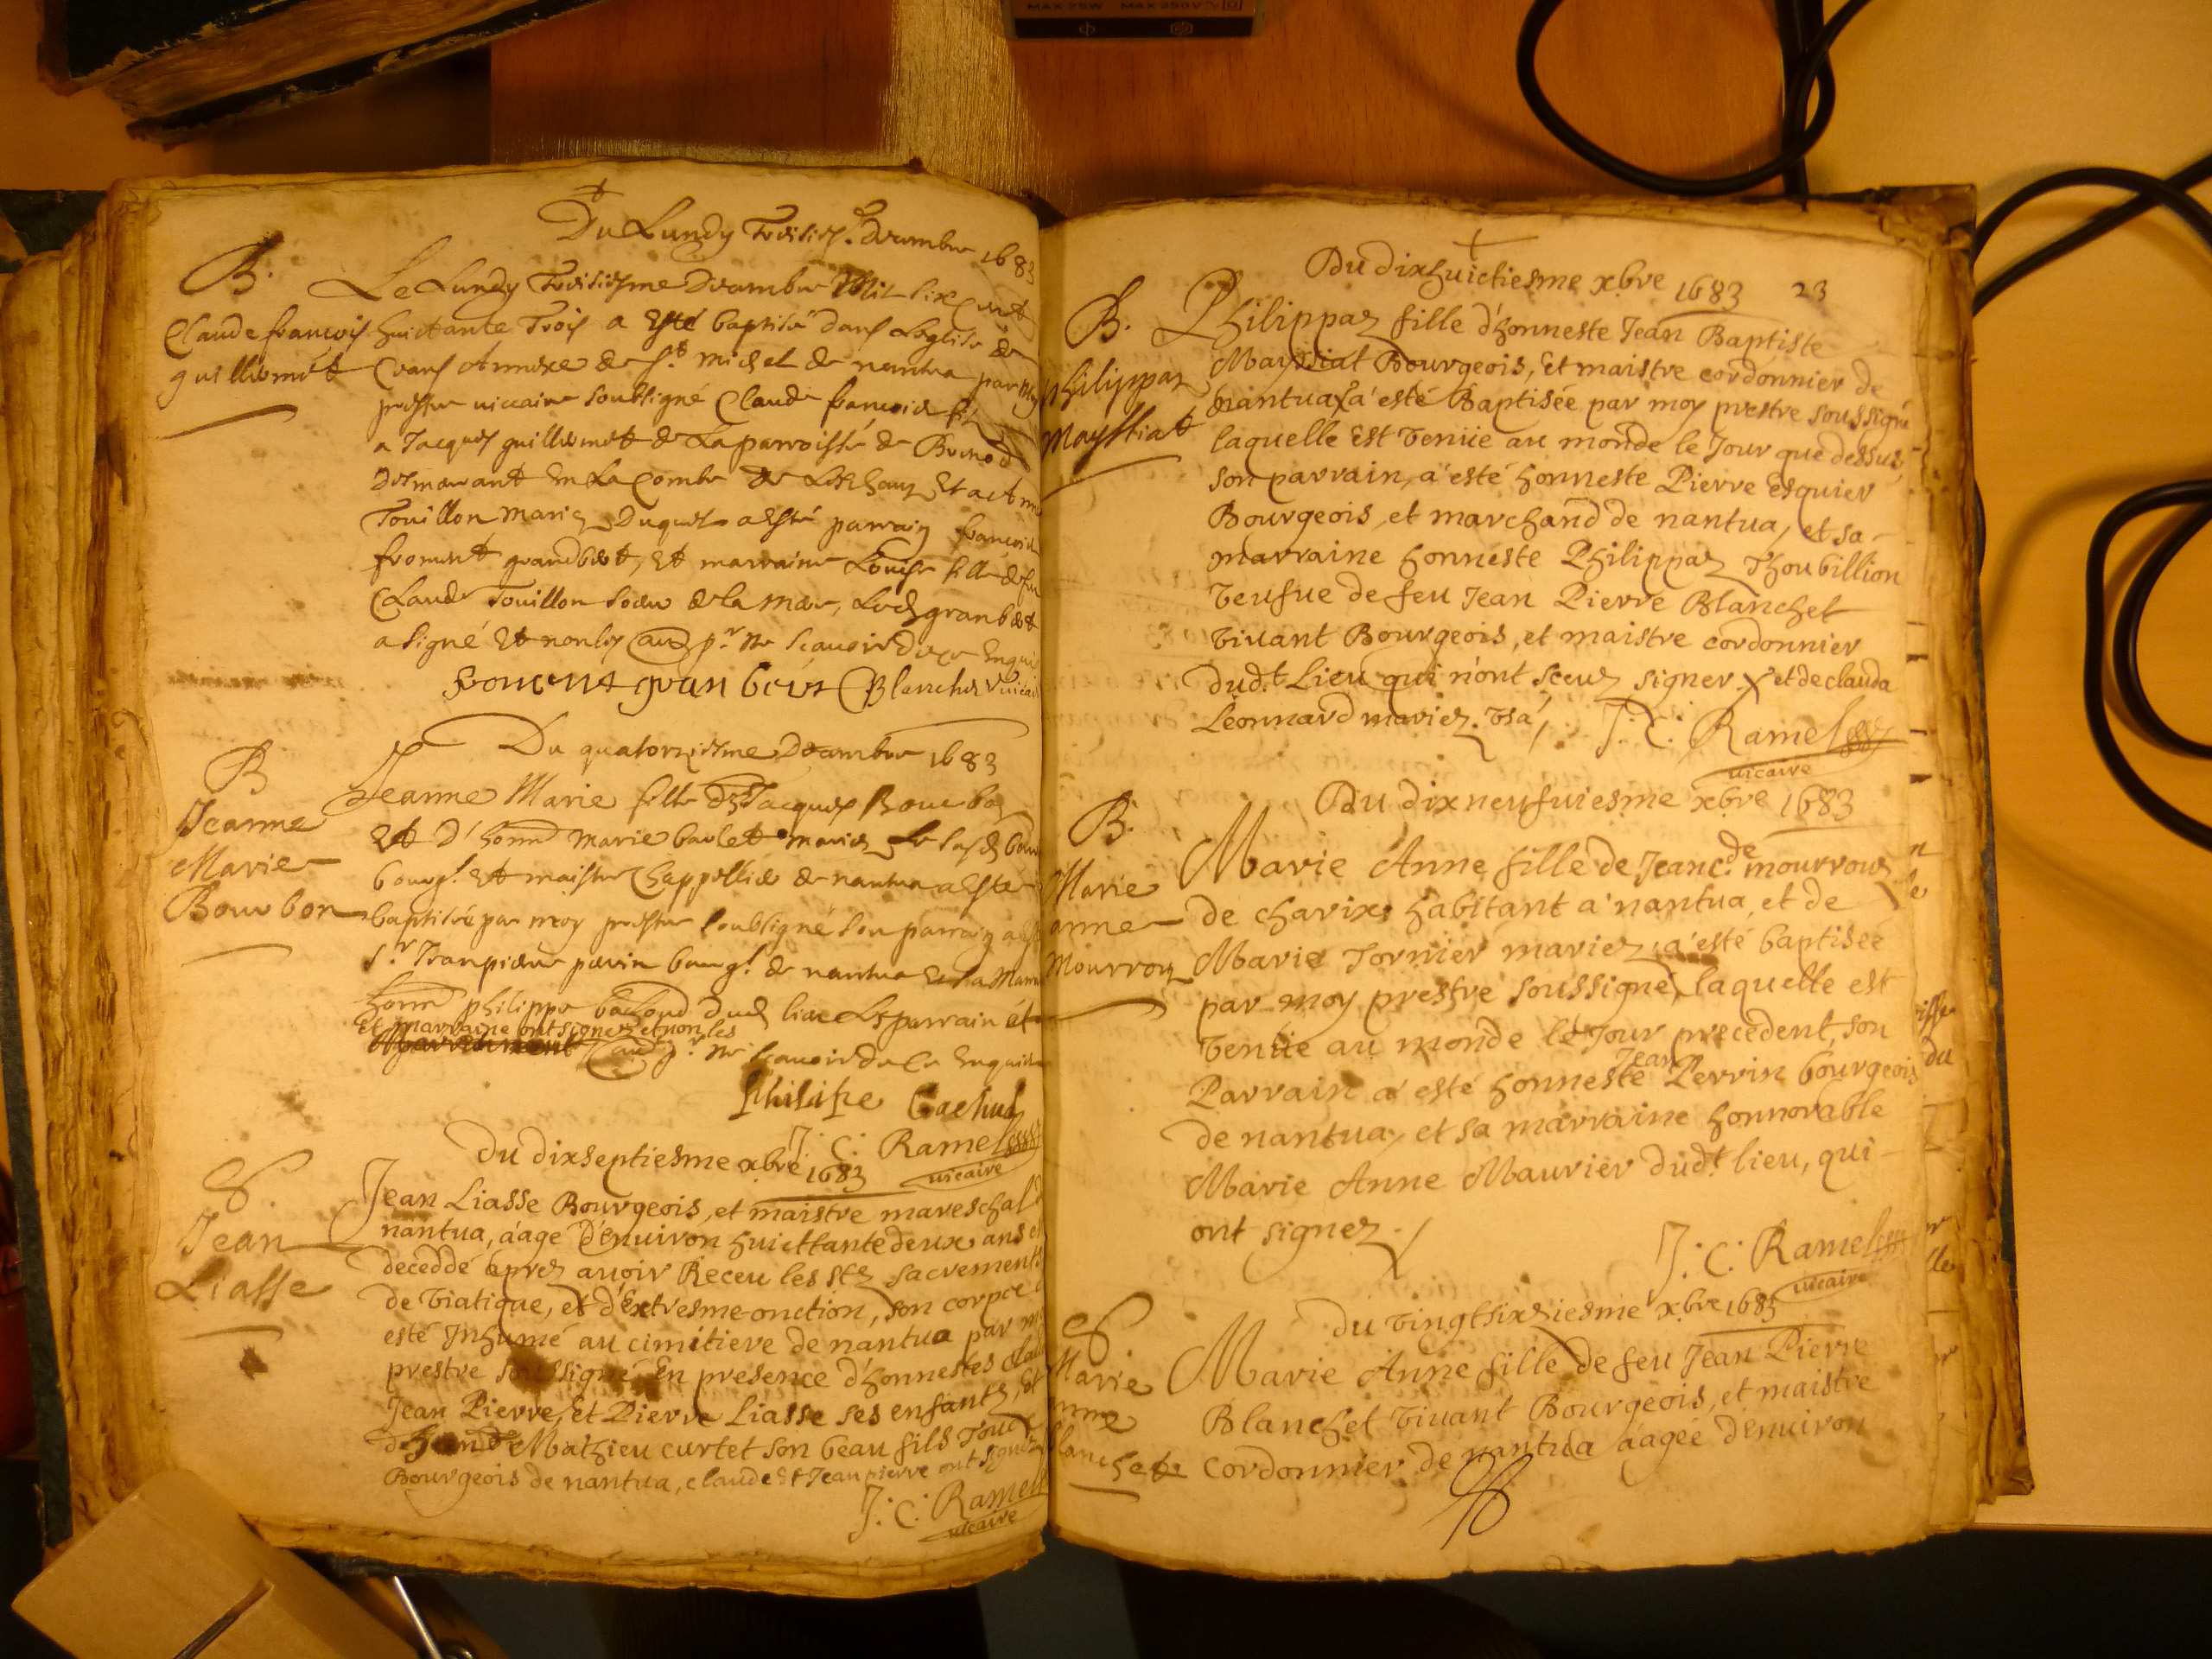 MAX 75W MAX 250V
Du Lundy Troisiesme Decembre 1683
B.
Claude francois
guillermet
Le Lundy Troisiesme Decembre Mil six cent
huictante Trois a esté baptisé dans Leglise de
Annexe de st. michel de nantua par moy
prestre viccaire soubsigné Claude francois filz
a Jacques guillermet de La parroisse de
demeurant En La Combe de et a
Touillon mariez Duquel a esté parrain francois
froment grandbest, et marraine Louise fille de feu
Claude Touillon soeur de la mere, Led granbest
a signé et non les aud pr. ne scavoir de ce Enquis
froment gran best Blanchet viccaire
Du quatorziesme Decembre 1683
B
Jeanne
Marie
Bourbon
Jeanne Marie fille de Jacques Bourbon
Et D'honn Marie mariez
bourg. et maistre Chappellier de nantua a esté
baptisée par moy prestre soubsigné son parrain a esté
sr. Jean pierre bourg. de nantua et sa marraine
honn philippe dud lieu Les parrain et
Et marraine ont signez et non les
aud pr. ne scavoir de ce Enquis
philipe
J. C. Ramel
vicaire
Du dixseptiesme xbre 1683
S.
Jean
Liasse
Jean Liasse Bourgeois, et maistre mareschal d
nantua, áage D'enuiron huicttante deux ans est
deceddé aprez auoir Receu les stz sacrements
de Viatique, et d'Extresme-onction, son corpce a
esté Inhumé au cimitiere de nantua par moy
prestre soussigné En presence d'honnestes claude
Jean Pierre, et Pierre Liasse ses enfantz, Et
d' Mathieu curtet son beau fils Touz
Bourgeois de nantua, claude Et Jean pierre ont signez
J. C. Ramel
vicaire
Du dixhuictiesme xbre 1683 23
B.
philippaz
Mayssiat
Philippaz fille d'honneste Jean Baptiste
Mayssiat Bourgeois, Et maistre cordonnier de
nantua X a esté Baptisée par moy prestre soussigné
laquelle Est Venüe au monde le Jour que dessus,
son parrain, a esté honneste Pierre Esquier
Bourgeois, et marchand de nantua, et sa
marraine honneste Philippaz Thoubillion
Veufue de feu Jean Pierre Blanchet
Viuant Bourgeois, et maistre cordonnier
dud.t Lieu qui n'ont sceuz signer. X et de clauda
Leonnard mariez.
J. C. Ramel
vicaire
Du dixneufuiesme xbre 1683
B.
Marie
anne
Mourroz
Marie Anne fille de Jean c.de mourroux
de charix habitant a nantua, et de
Marie Tornier mariez, a esté baptisée
par moy prestre soussigné, laquelle est
Venüe au monde le Jour precedent, son
Parrain a esté honneste Jean Perrin bourgeois
de nantua, et sa marraine honnorable
Marie Anne Maurier dud.t lieu, qui
ont signez.
J. C. Ramel
vicaire
du Vingtsixziesme xbre 1683
S
Marie
anne
blanchet
Marie Anne fille de feu Jean Pierre
Blanchet Viuant Bourgeois, et maistre
Cordonnier de nantua áagée D'enuiron